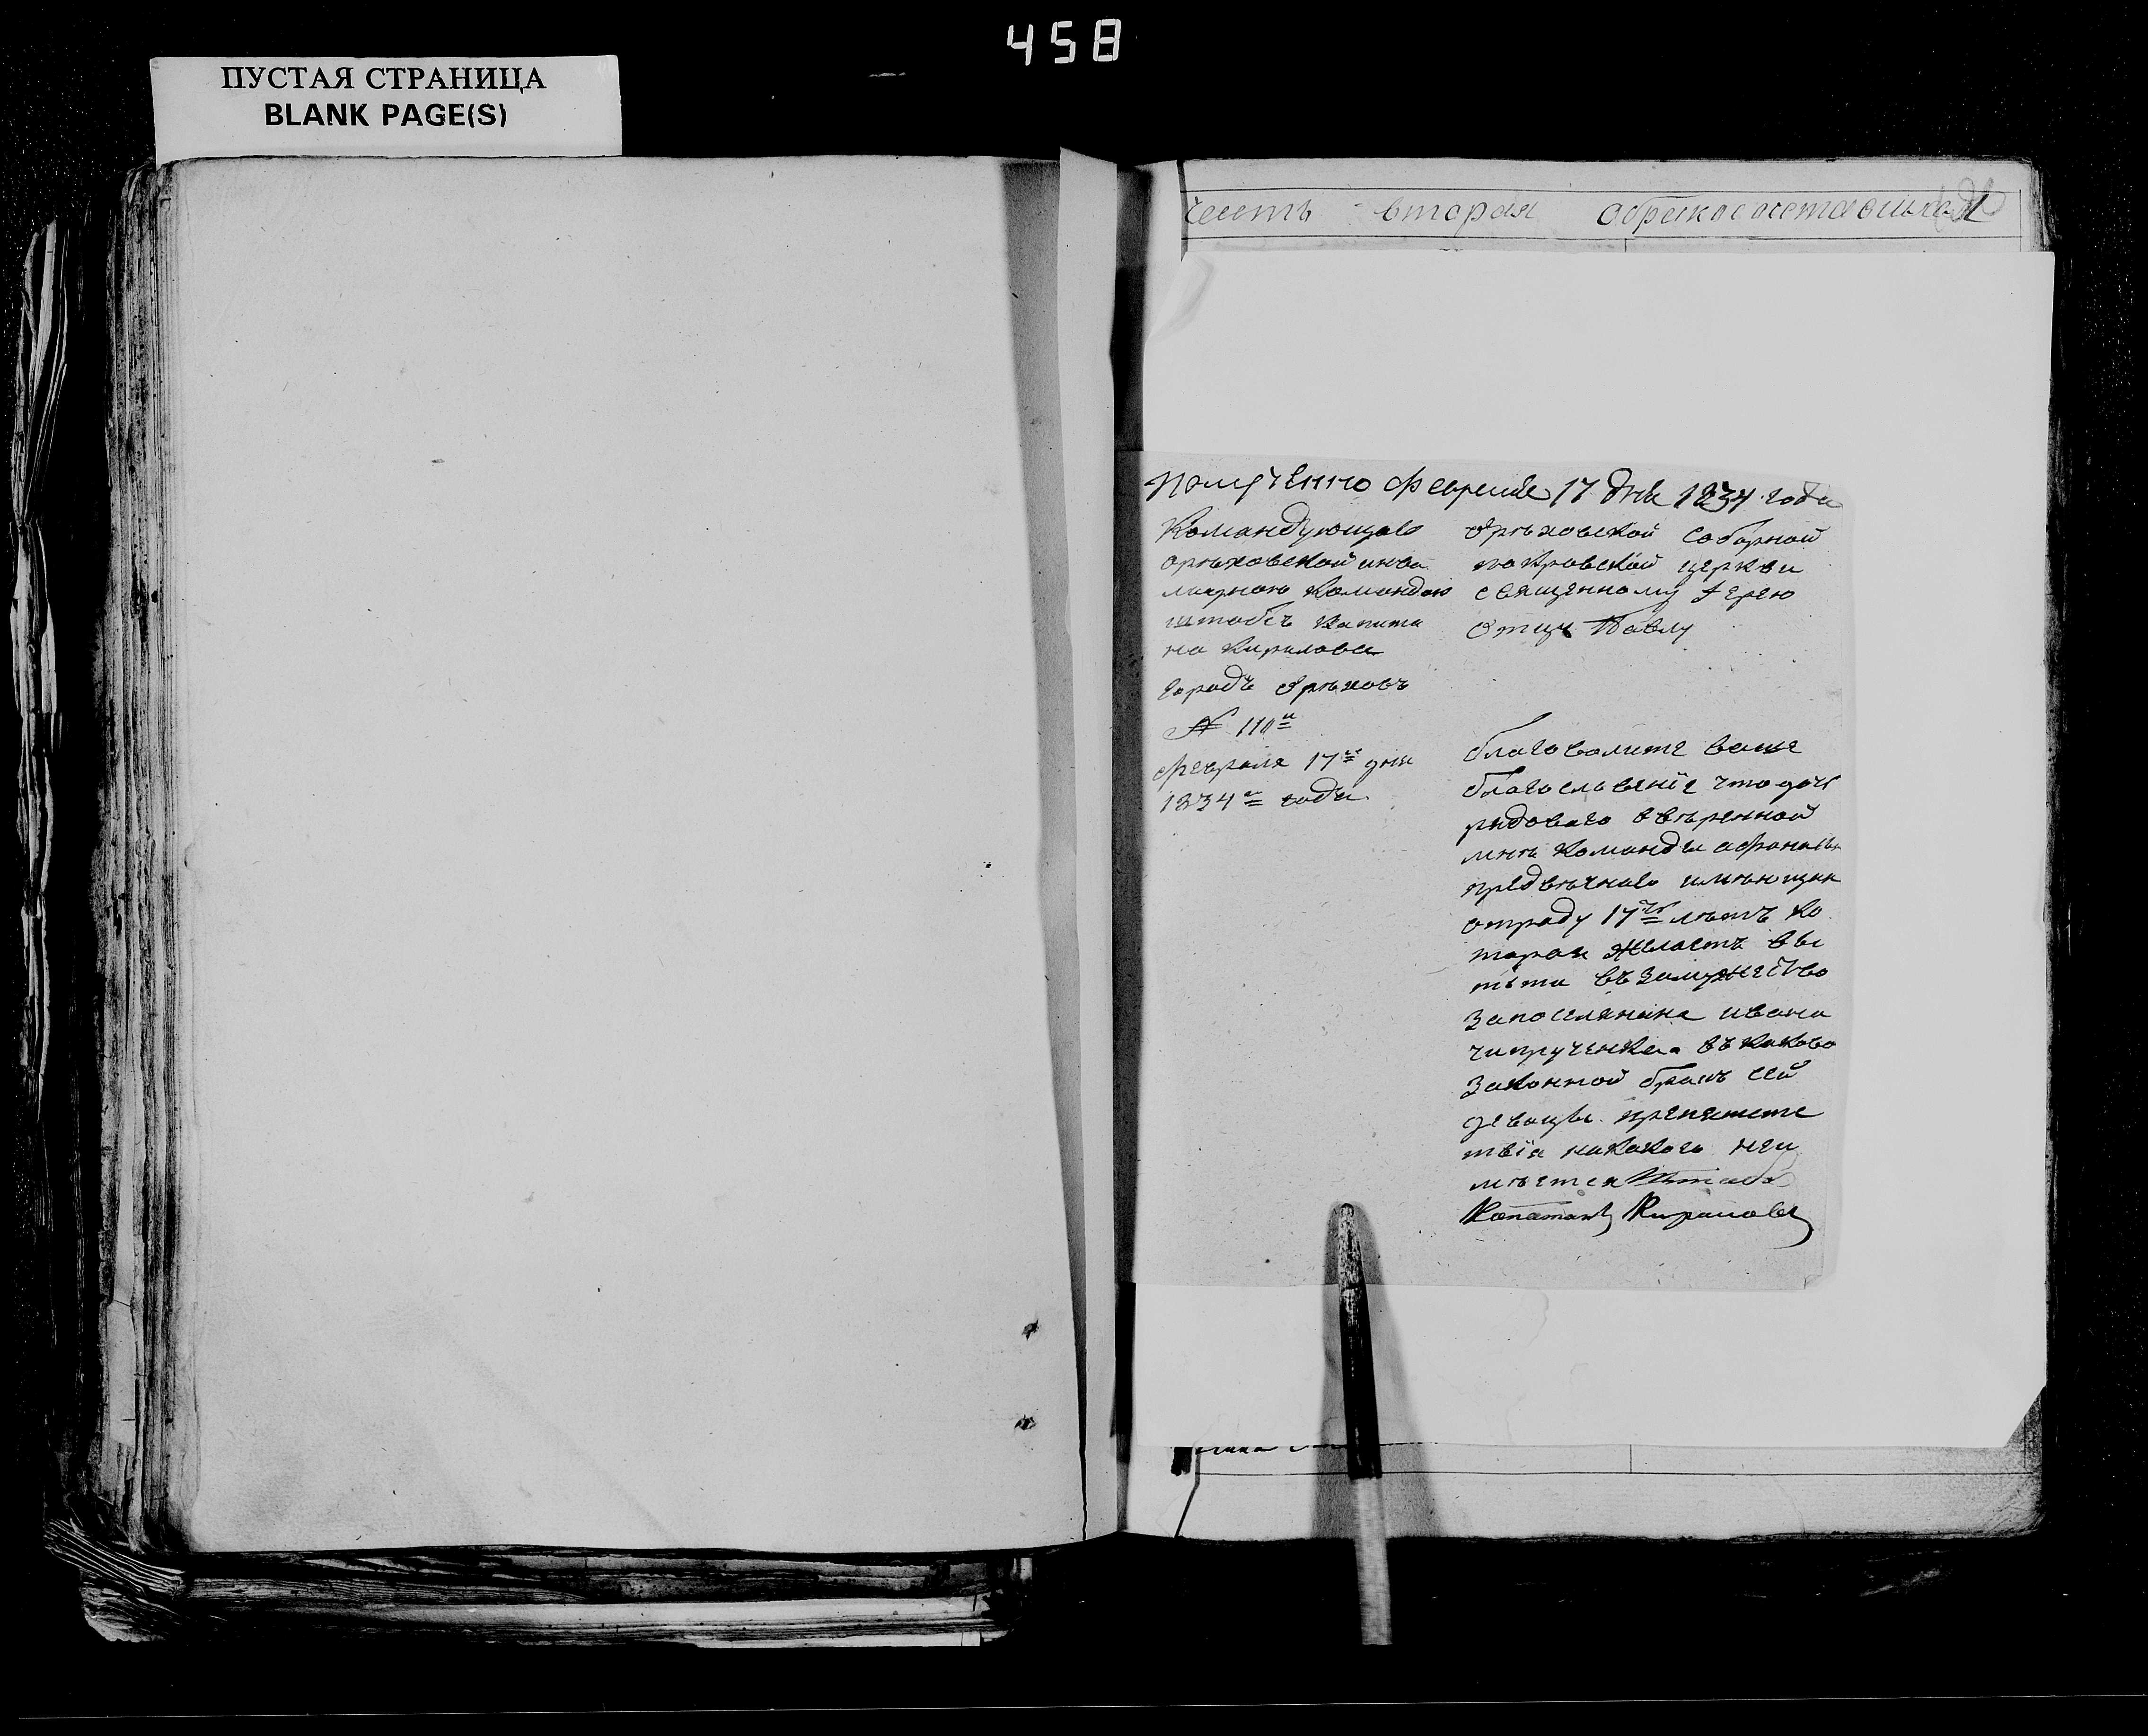 458
ПУСТАЯ СТРАНИЦА
BLANK PAGE(S)
часть вторая
полученно февраля 17 дня 1834 года
Командующаго
орѣховской инва
лидною командою
штабсъ капита
на Кирилова
городъ Орѣховъ
№ 110й
февраля 17го дня
1834го года
Орѣховской соборной
покровской церкви
священному Іерею
отцу Павлу
благоволите ваше
благословеніе что дочь
рядоваго ввѣренной
мнѣ команды
имѣющая
отроду 17ть лѣтъ ко
торая желаетъ вы
тьти въ замужество
запоселянина ивана
чипрученка въ каково
законной бракъ сей
девицы препятстс
твія никакого неи
мѣется Штабсъ
Капитанъ Кириловъ